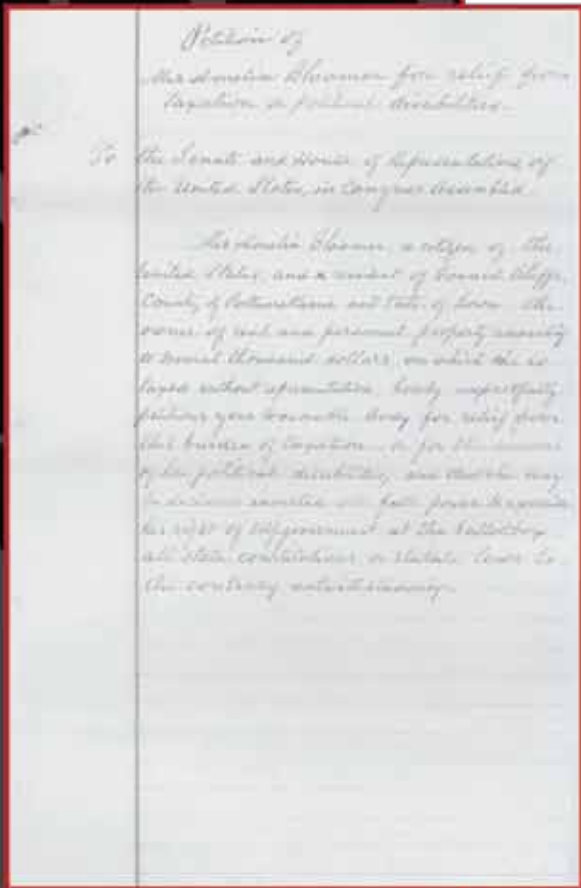 Petition of
Mrs Amelia Bloomer for relief from
taxation or political disabilities.
To the Senate and House of Representatives of
the United States, in Congress Assembled
Mrs Amelia Bloomer, a citizen of the
United States, and a resident of Council Bluffs,
County of Pottawattamie and State of Iowa the
owner of real and personal property amounting
to several thousand dollars, on which she is
taxed without representation, hereby respectfully
petitions your honorable body for relief from
this burden of taxation, or for the removal
of her political disabilities, and that she may
be declared invested with full power to exercise
her right of self government at the ballot box
all state constitutions or statute laws to
the contrary notwithstanding.